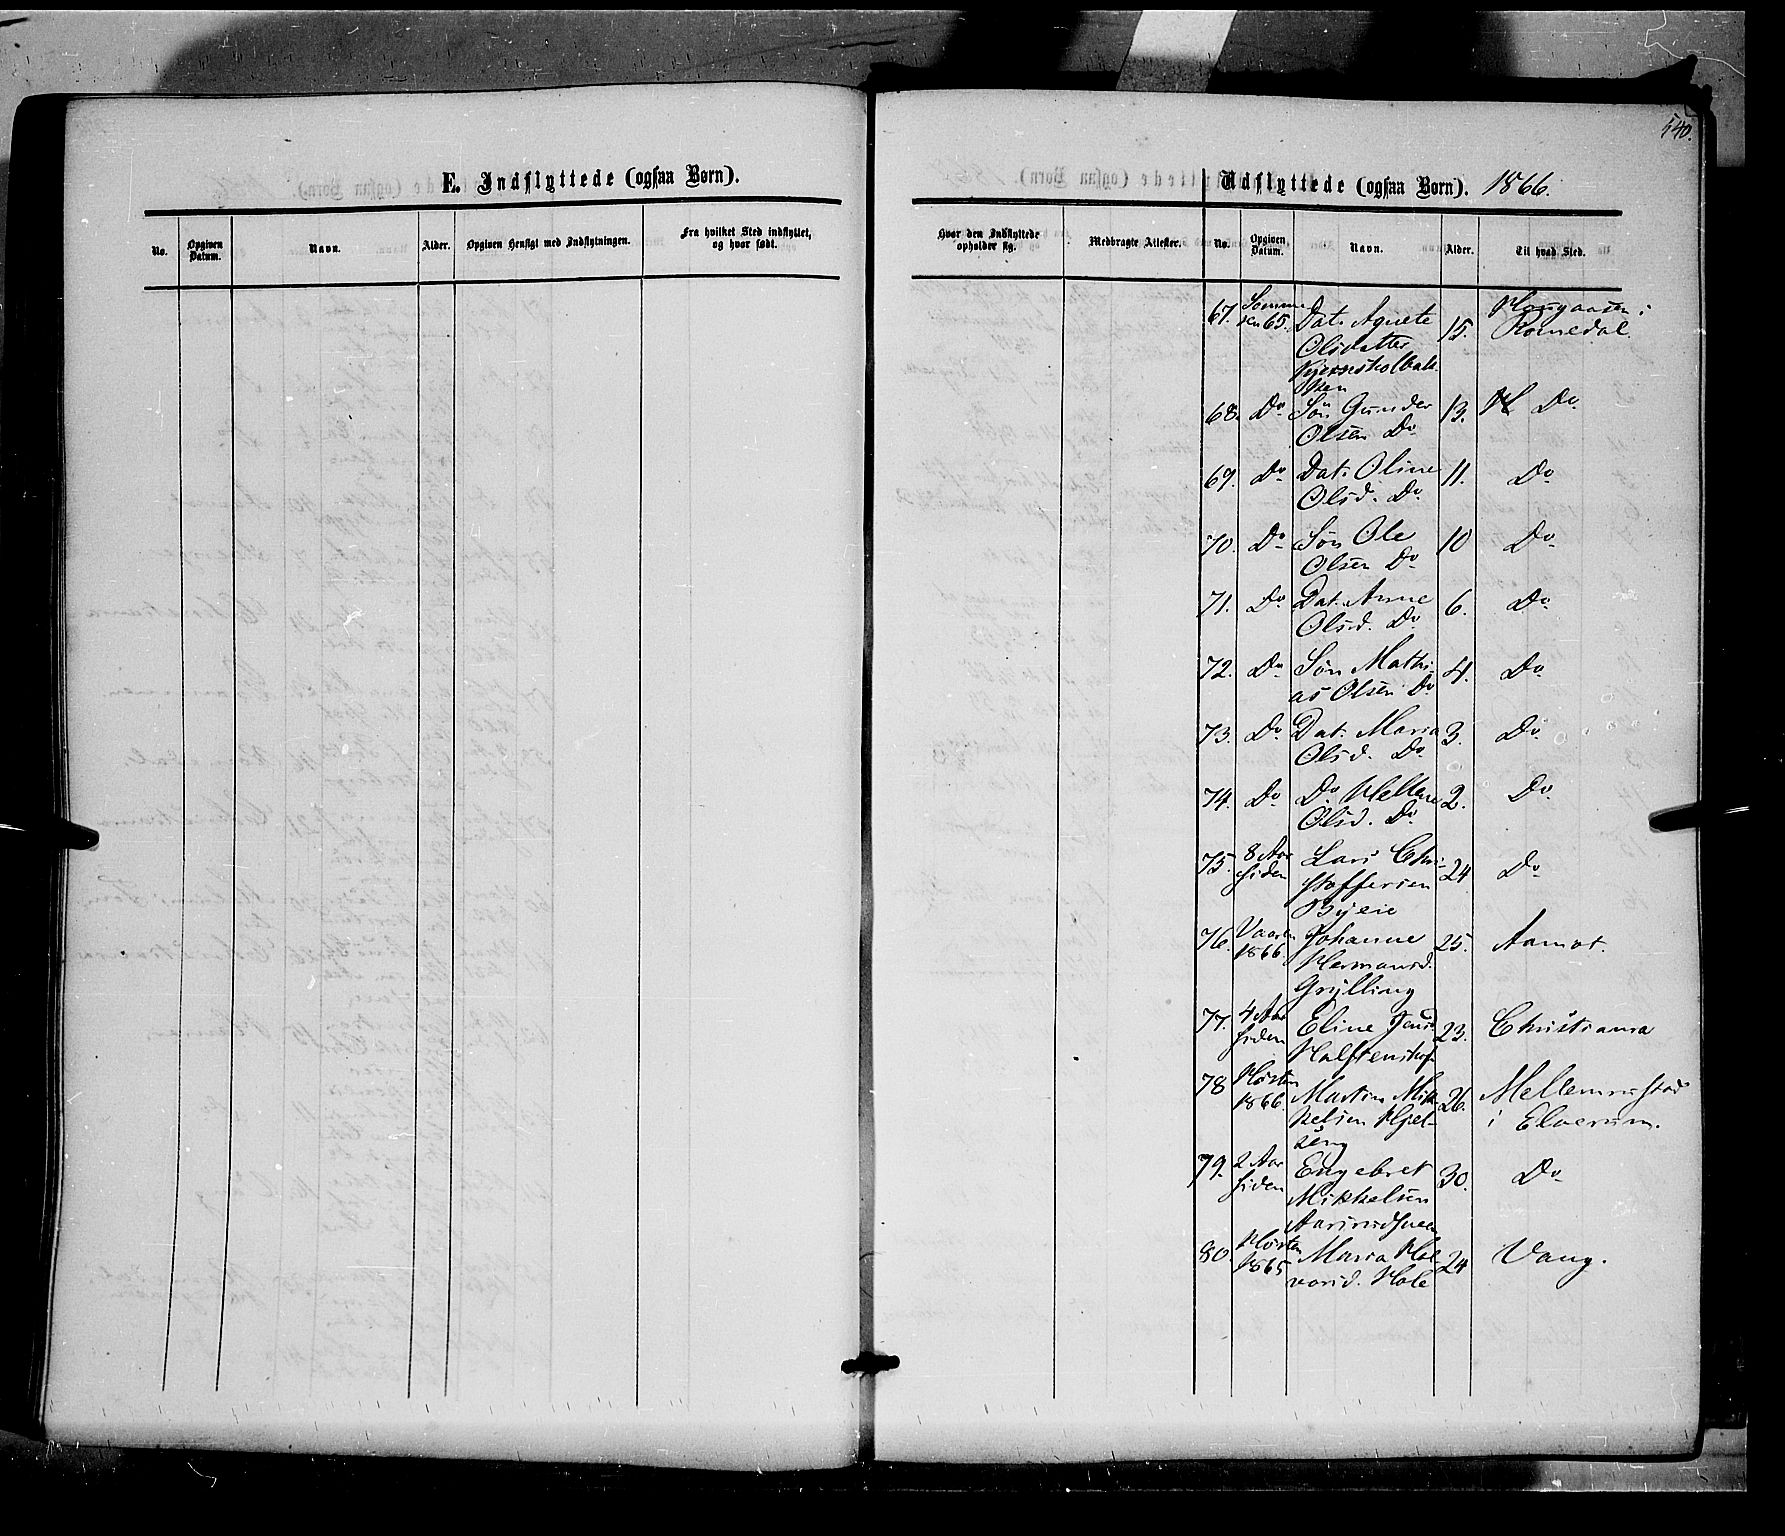 540.
E. Indflyttede (ogsaa Børn).
No.
Opgiven Datum.
Navn.
Alder.
Opgiven Hensigt med Indflytningen.
Fra hvilket Sted indflyttet, og hvor født.
Hvor den Indflyttede opholder sig.
Medbragte Attester.
Udflyttede (ogsaa Børn). 1866.
No.
Opgiven Datum.
Navn.
Alder.
Til hvad Sted.
67. Sommeren 65. Dat. Agnete 15. i
Olsdatter Romedal.
68. Do Søn Gunder 13. Do
Olsen Do
69. Do Dat. Oline 11. Do
Olsd. Do
70. Do Søn Ole 10 Do
Olsen Do
71. Do Dat. Anne 6. Do
Olsd. Do
72. Do Søn Mathi- 4. Do
as Olsen Do
73. Do Dat. Maria 3. Do
Olsd. Do
74. Do Do Hellene 2. Do
Olsd. Do
75. 8 Aar siden Lars Chri- 24 Do
stoffersen
Byeie
76. Vaaren 1866. Johanne 25. Aamot.
Hermansd.
Grylling
77. 4 Aar siden Eline Jensd 23. Christiania
78 Høsten 1866. Martin Mik- 26. Mellemrustad
kelsen Hjel- i Elverum.
seng
79. 2 Aar siden Engebret 30. Do
Mikkelsen
80. Høsten 1865 Maria Hal- 24 Vang.
vorsd. Hole